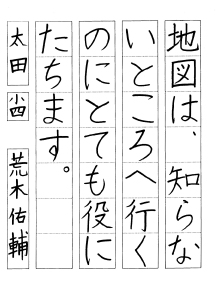 地図は、知らな
いところへ行く
のにとても役に
たちます。
太田 小四 荒木佑輔